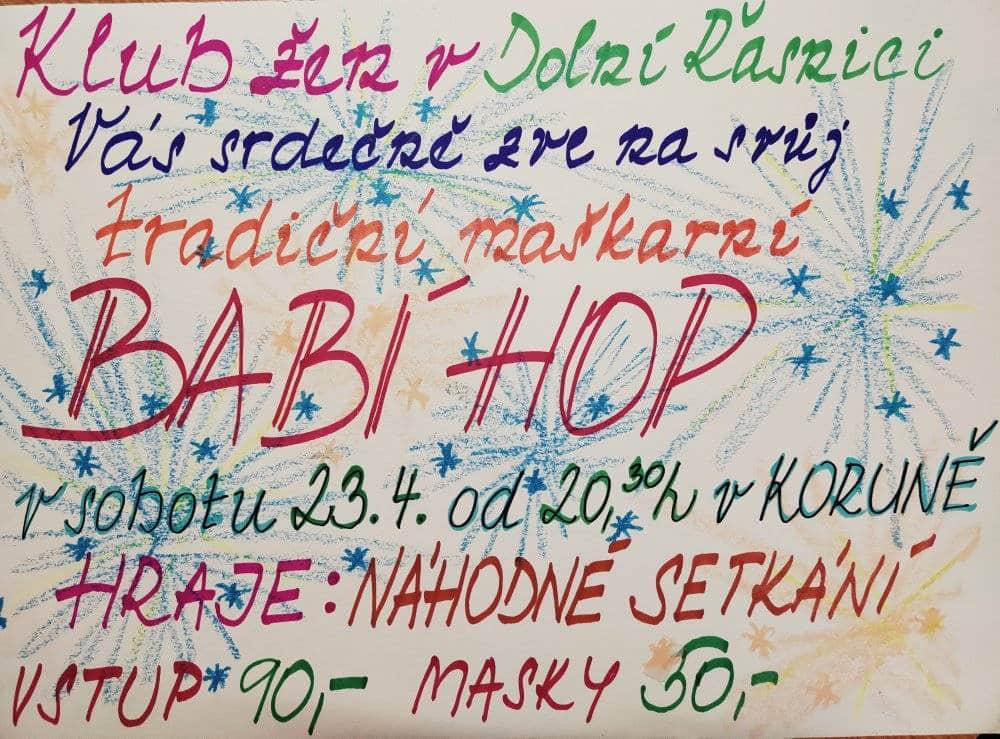 Klub žen v Dolní Řasnici
Vás srdečně zve na svůj
tradiční maškarní
BABÍ HOP
v sobotu 23.4. od 20,30h v KORUNĚ
HRAJE: NÁHODNÉ SETKÁNÍ
VSTUP 90,- MASKY 50,-